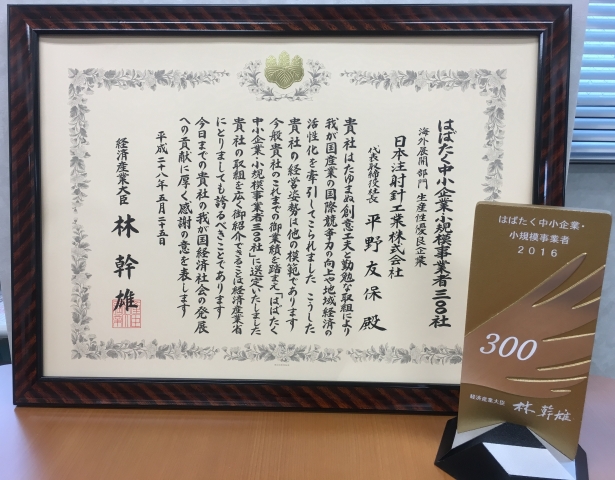 はばたく中小企業・小規模事業者三〇〇社
海外展開部門 生産性優良企業
日本注射針工業株式会社
代表取締役社長 平野友保 殿
貴社はたゆまぬ創意工夫と勤勉な取組により
我が国産業の国際競争力の向上や地域経済の
活性化を牽引してこられました こうした
貴社の経営姿勢は他の模範であります
今般貴社のこれまでの御業績を踏まえ「はばたく
中小企業・小規模事業者三〇〇社」に選定いたしました
貴社の取組を広く御紹介できることは経済産業省
にとりましても誇るべきことであります
今日までの貴社の我が国経済社会の発展
への貢献に厚く感謝の意を表します
平成二十八年五月二十五日
経済産業大臣 林幹雄
はばたく中小企業・
小規模事業者
2016
300
経済産業大臣 林幹雄